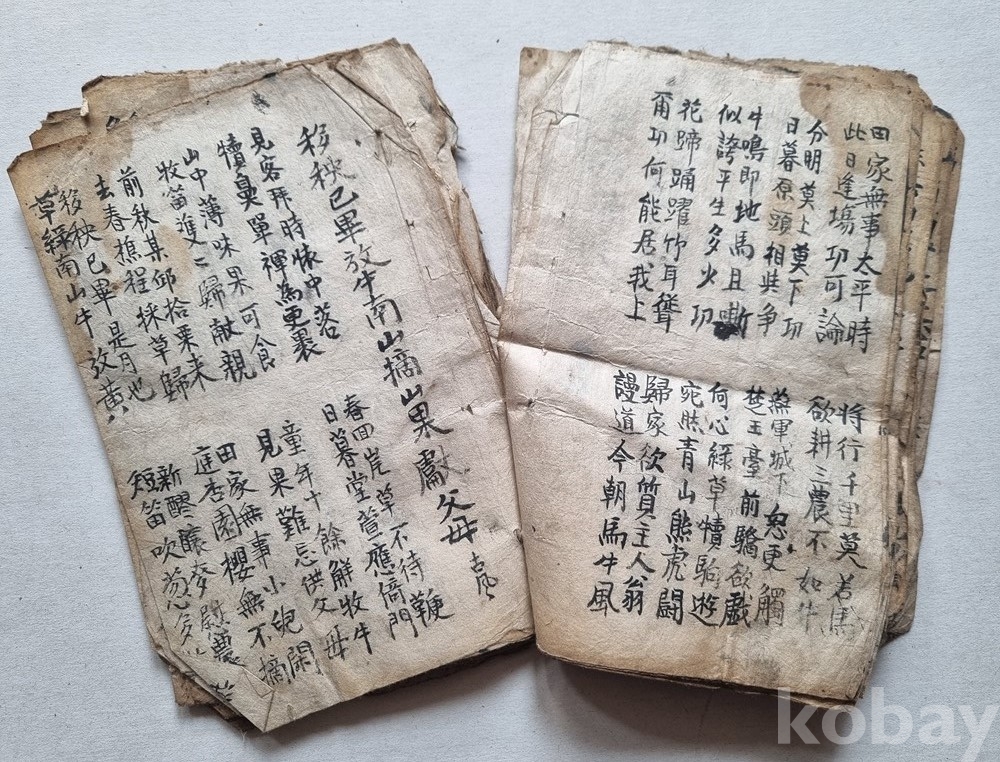 田家無事太平時
此日逢場功可論
分明莫上莫下功
日暮原頭相與爭
牛鳴即地馬且嘶
似誇平生多少功
花蹄踊躍竹耳聳
爾功何能居我上
將行千里莫若馬
欲耕三農不如牛
燕軍城下忽更觸
楚王臺前驕欲戲
何心綠草犢駘遊
宛然青山熊虎鬪
歸家欲質主人翁
謾道今朝馬牛風
移秧已畢放牛南山摘山果獻父母 古風
見客拜時懷中落
犢鼻單褌為更裹
山中薄味果可食
牧笛雙〻歸獻親
前秋某邱拾栗來
去春樵程採草歸
移秧已畢是月也
草綠南山牛放黃
春回岸草不待鞭
日暮堂萱應倚門
童年十餘解牧牛
見果難忘供父母
田家無事小兒閑
庭杏園櫻無不摘
新醪釀麥慰農
短笛吹
kobay